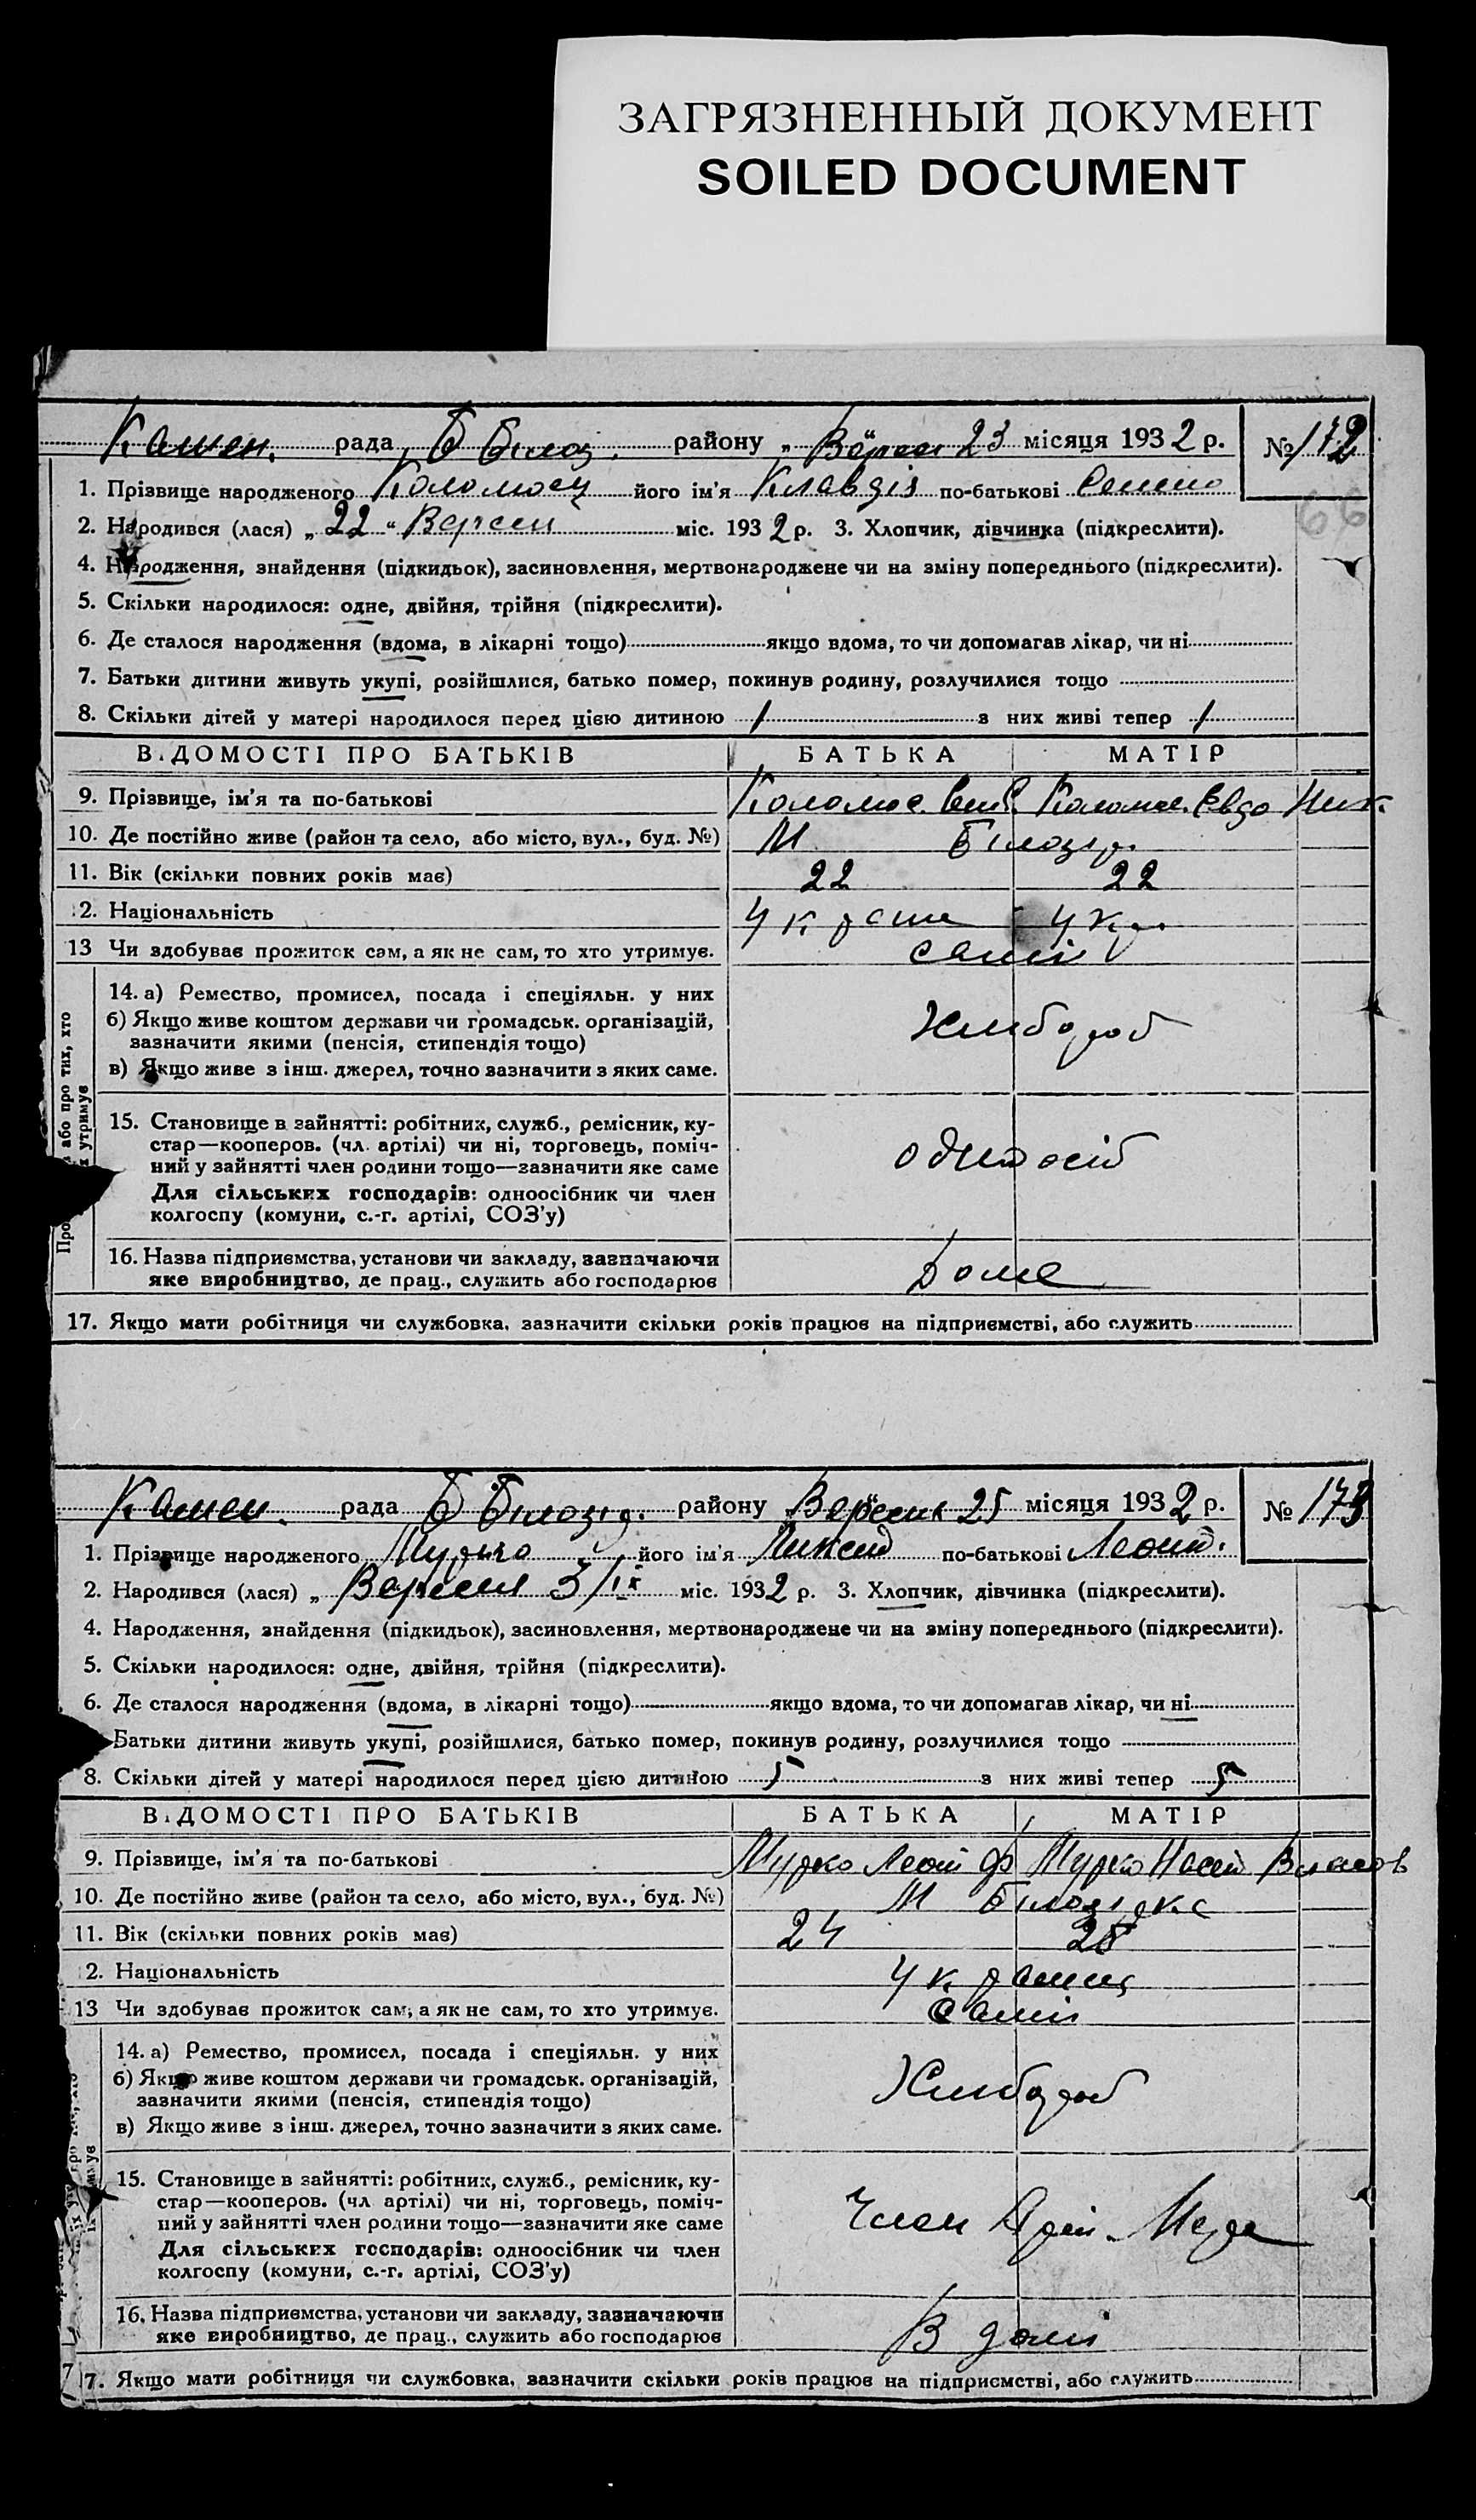 ЗАГРЯЗНЕННЫЙ ДОКУМЕНТ
SOILED DOCUMENT
Камен. рада Б Білоз. району „ Верес 23 місяця 1932 р. № 172
1. Прізвище народженого Коломоец його ім'я Клавдія по-батькові Семено
66
2. Народився (лася) „ 22 “ Вересн міс. 1932 р. 3. Хлопчик, дівчинка (підкреслити).
4. Народження, знайдення (підкидьок), засиновлення, мертвонароджене чи на зміну попереднього (підкреслити).
5. Скільки народилося: одне, двійня, трійня (підкреслити).
6. Де сталося народження (вдома, в лікарні тощо) якщо вдома, то чи допомагав лікар, чи ні
7. Батьки дитини живуть укупі, розійшлися, батько помер, покинув родину, розлучилися тощо
8. Скільки дітей у матері народилося перед цією дитиною 1 з них живі тепер 1
ВІДОМОСТІ ПРО БАТЬКІВ БАТЬКА МАТІР
9. Прізвище, ім'я та по-батькові Коломоє. Коломоє. Євдо
10. Де постійно живе (район та село, або місто, вул., буд. №) М Білозір.
11. Вік (скільки повних років має) 22 22
12. Національність Україне Укр.
13 Чи здобуває прожиток сам, а як не сам, то хто утримує. самі
14. а) Ремество, промисел, посада і спеціяльн. у них
б) Якщо живе коштом держави чи громадськ. організацій,
зазначити якими (пенсія, стипендія тощо)
Хлибороб
в) Якщо живе з інш. джерел, точно зазначити з яких саме.
або про тих, хто
утримує
15. Становище в зайнятті: робітних, служб., ремісник, ку-
стар—кооперов. (чл. артілі) чи ні, торговець, поміч-
ний у зайнятті член родини тощо—зазначити яке саме
Для сільських господарів: одноосібник чи член
колгоспу (комуни, с.-г. артілі, СОЗ'у)
одноосіб
16. Назва підприємства, установи чи закладу, зазначаючи
яке виробництво, де прац., служить або господарює
Доме
17. Якщо мати робітниця чи службовка, зазначити скільки років працює на підприємстві, або служить
Камен. рада Б Білозір. району „ Вересня 25 місяця 1932 р. № 173
1. Прізвище народженого Мурко його ім'я по-батькові Леонт.
2. Народився (лася) „ Вересня 3/ІХ міс. 1932 р. 3. Хлопчик, дівчинка (підкреслити).
4. Народження, знайдення (підкидьок), засиновлення, мертвонароджене чи на зміну попереднього (підкреслити).
5. Скільки народилося: одне, двійня, трійня (підкреслити).
6. Де сталося народження (вдома, в лікарні тощо) якщо вдома, то чи допомагав лікар, чи ні
Батьки дитини живуть укупі, розійшлися, батько помер, покинув родину, розлучилися тощо
8. Скільки дітей у матері народилося перед цією дитиною 5 з них живі тепер 5
ВІДОМОСТІ ПРО БАТЬКІВ БАТЬКА МАТІР
9. Прізвище, ім'я та по-батькові Мурко Леонт Ф Мурко Власов
10. Де постійно живе (район та село, або місто, вул., буд. №) М Білозірка
11. Вік (скільки повних років має) 24 28
12. Національність Українц
13 Чи здобуває прожиток сам, а як не сам, то хто утримує. Самі
14. а) Ремество, промисел, посада і спеціяльн. у них
б) Якщо живе коштом держави чи громадськ. організацій,
зазначити якими (пенсія, стипендія тощо)
Хлибороб
в) Якщо живе з інш. джерел, точно зазначити з яких саме.
15. Становище в зайнятті: робітних, служб., ремісник, ку-
стар—кооперов. (чл артілі) чи ні, торговець, поміч-
ний у зайнятті член родини тощо—зазначити яке саме
Член
Для сільських господарів: одноосібник чи член
колгоспу (комуни, с.-г. артілі, СОЗ'у)
16. Назва підприємства, установи чи закладу, зазначаючи
яке виробництво, де прац., служить або господарює
В домі
7. Якщо мати робітниця чи службовка, зазначити скільки років працює на підприємстві, або служить